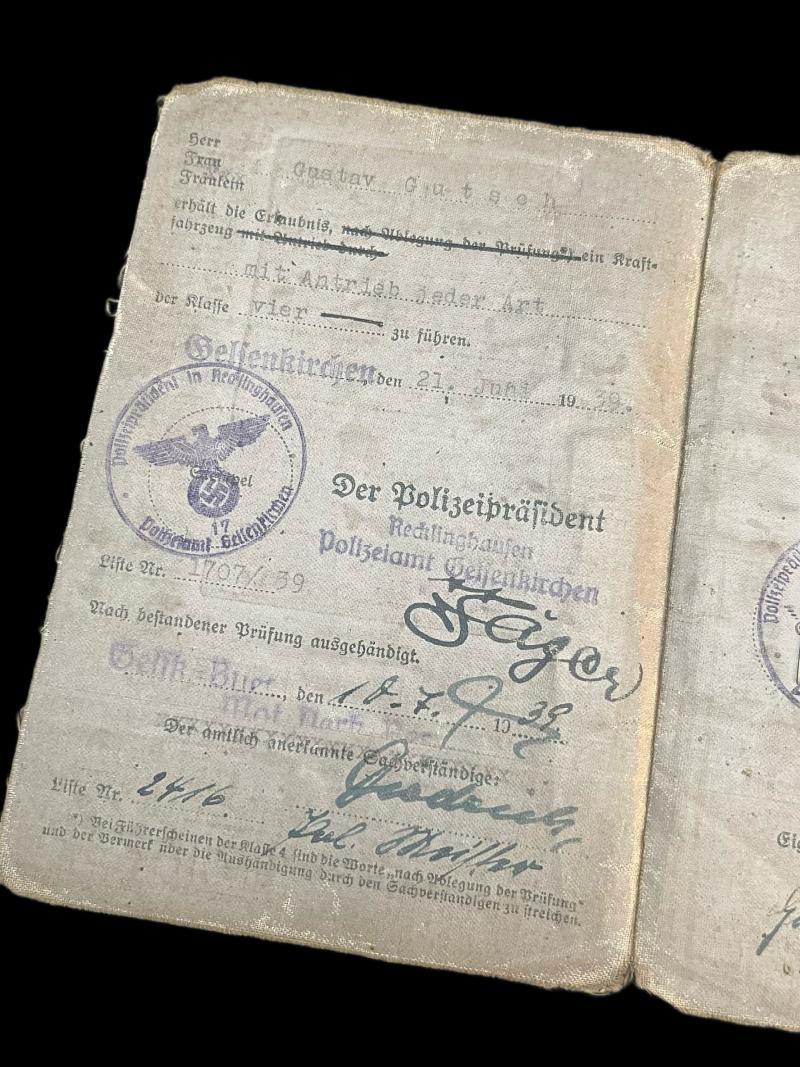 Herr
Frau Gustav Gutsch
Fräulein
erhält die Erlaubnis, nach Ablegung der Prüfung*) ein Kraft-
fahrzeug mit Antrieb durch
mit Antrieb jeder Art
der Klasse vier zu führen.
Gelsenkirchen, den 21. Juni 1939.
Polizeipräsident in Recklinghausen
Stempel
17
Polizeiamt Gelsenkirchen
Der Polizeipräsident
Recklinghausen
Polizeiamt Gelsenkirchen
Liste Nr. 1707/39
Jäger
Nach bestandener Prüfung ausgehändigt.
Gelsk-Buer, den 10.7. 1939
Der amtlich anerkannte Sachverständige:
Liste Nr. 2416.
*) Bei Führerscheinen der Klasse 4 sind die Worte „nach Ablegung der Prüfung"
und der Vermerk über die Aushändigung durch den Sachverständigen zu streichen.
Polizeipräsident
Eig